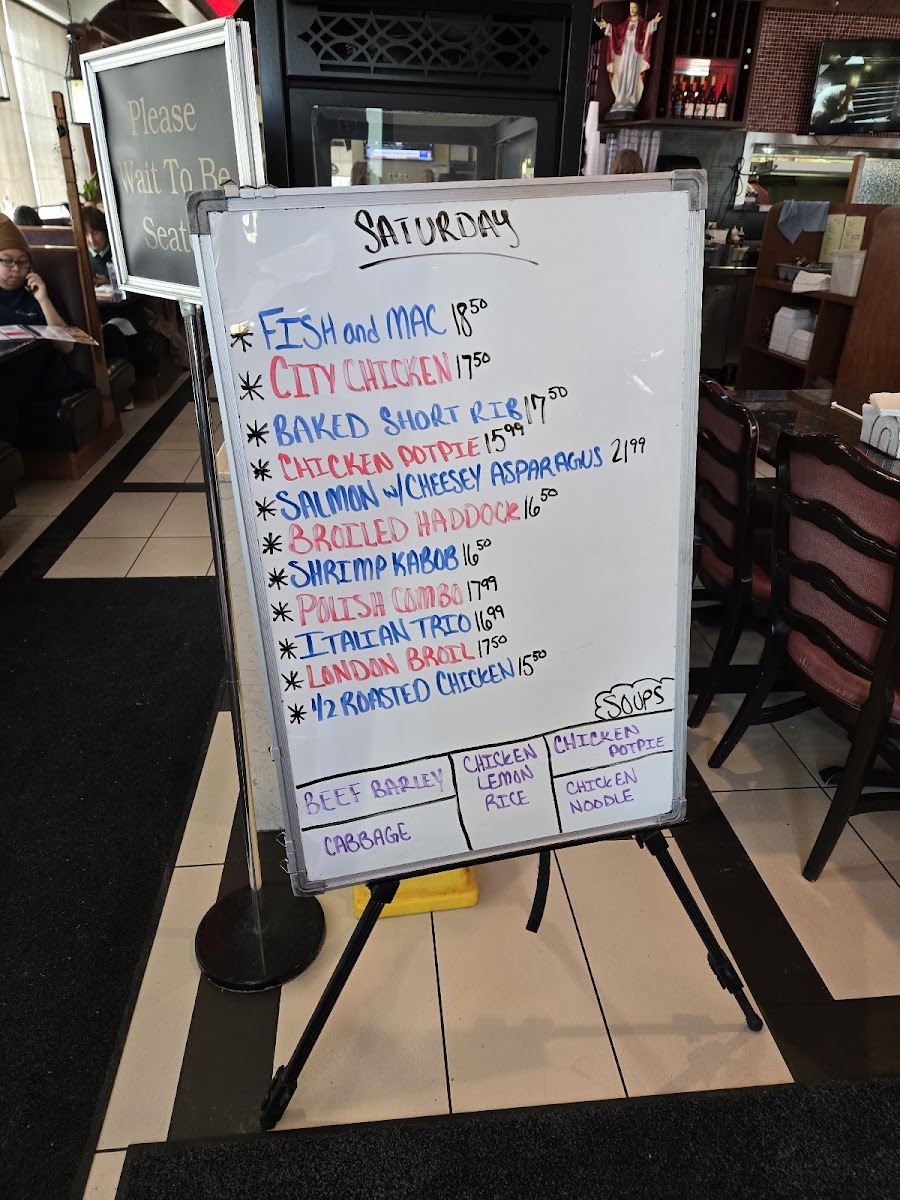 Please
Wait To Be
Seat
SATURDAY
* FISH and MAC 18⁵⁰
* CITY CHICKEN 17⁵⁰
* BAKED SHORT RIB 17⁵⁰
* CHICKEN POTPIE 15⁹⁹
* SALMON w/CHEESEY ASPARAGUS 21⁹⁹
* BROILED HADDOCK 16⁵⁰
* SHRIMP KABOB 16⁵⁰
* POLISH COMBO 17⁹⁹
* ITALIAN TRIO 16⁹⁹
* LONDON BROIL 17⁵⁰
* 1/2 ROASTED CHICKEN 15⁵⁰
SOUPS
BEEF BARLEY
CABBAGE
CHICKEN
LEMON
RICE
CHICKEN
POTPIE
CHICKEN
NOODLE